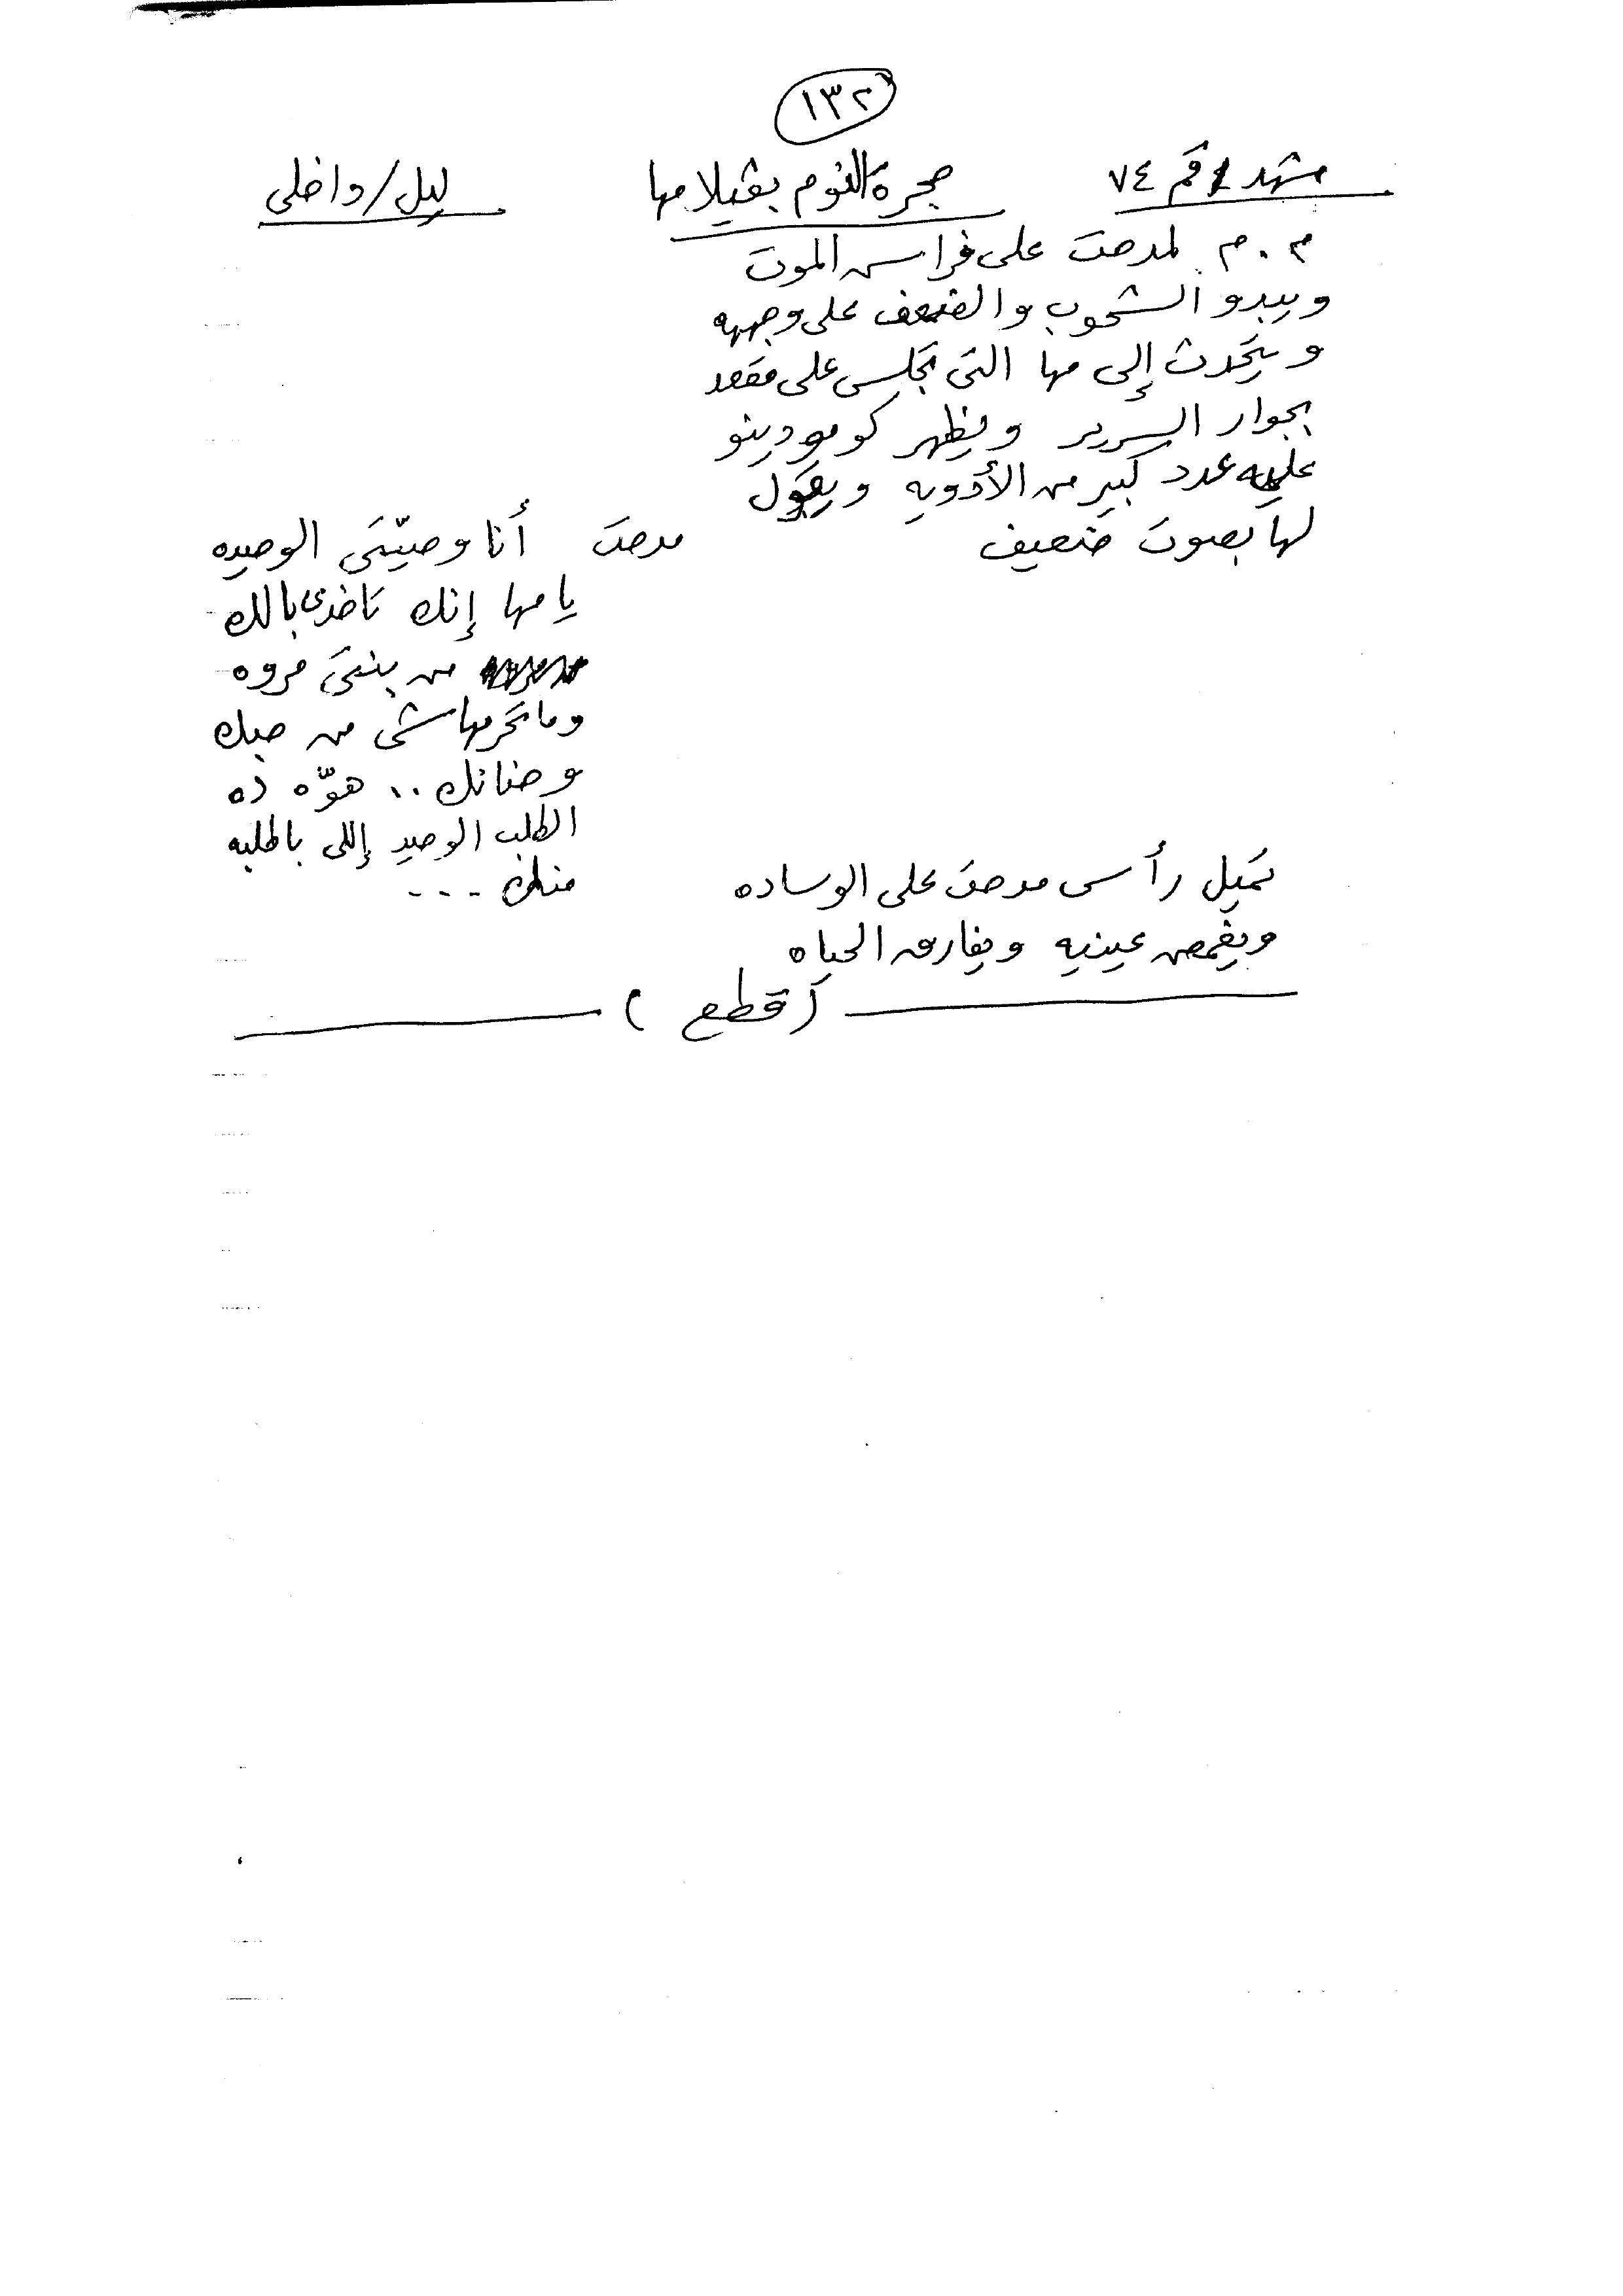 ١٣٢
مشهد رقم ٧٤ حجرة النوم بڤيلا مها ليل/داخلى
م.م لمدحت على فراش الموت
ويبدو الشحوب والضعف على وجهه
ويتحدث إلى مها التى تجلس على مقعد
بجوار السرير ويظهر كومودينو
عليه عدد كبير من الأدويه ويقول
لها بصوت ضعيف
مدحت أنا وصيّتى الوحيده
يا مها إنك تاخدى بالك
من بنتى مروه
وماتحرمهاش من حبك
وحنانك .. هوّه ده
الطلب الوحيد إللى باطلبه
منك ...
تميل رأس مدحت على الوساده
ويغمض عينيه ويفارق الحياه
(قطع)